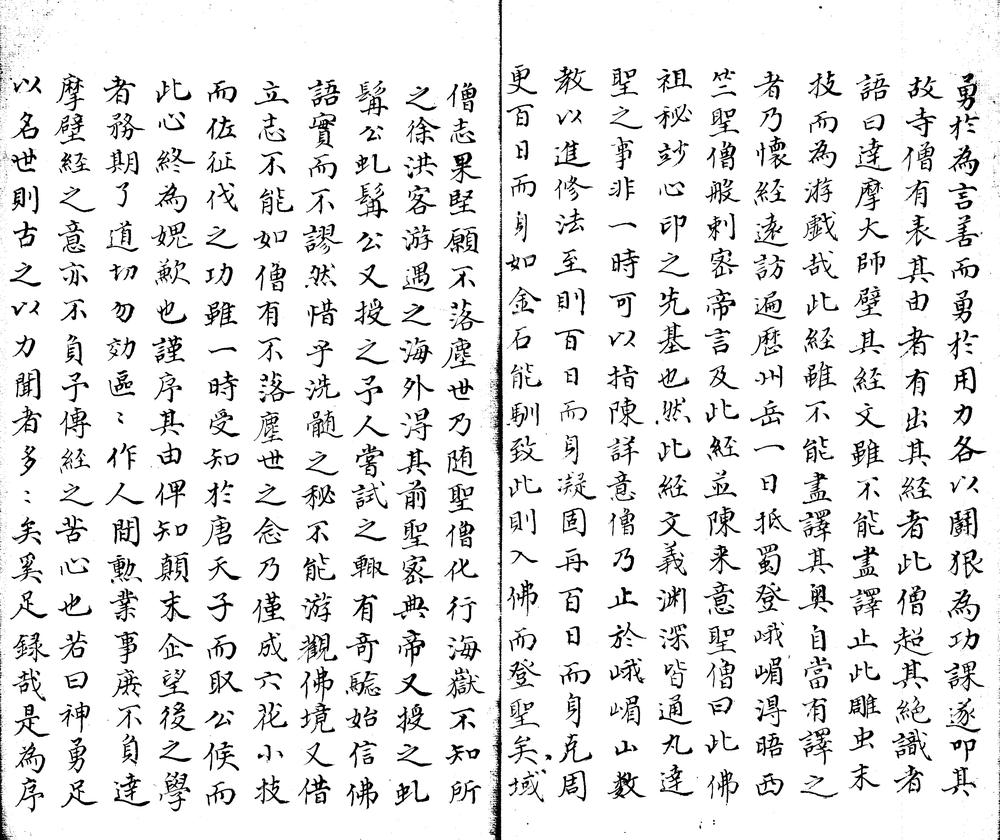 勇於為言善而勇於用力各以鬪狠為功課遂叩其
故寺僧有表其由者有出其經者此僧超其絕識者
語曰達摩大師壁其經文雖不能盡譯止此雕虫末
技而為游戲哉此經雖不能盡譯其奧自當有譯之
者乃懷經遠訪遍歷州岳一日抵蜀登峨嵋淂晤西
竺聖僧般剌密帝言及此經並陳来意聖僧曰此佛
祖秘玅心印之先基也然此經文義渊深皆通九達
聖之事非一時可以指陳詳意僧乃止於峨嵋山數
教以進修法至則百日而身凝固再百日而身克周
更百日而身如金石能馴致此則入佛而登聖矣域
僧志果堅願不落塵世乃随聖僧化行海嶽不知所
之徐洪客游遇之海外淂其前聖密典帝又授之虬
髯公虬髯公又授之予人嘗試之輙有奇騐始信佛
語實而不謬然惜乎洗髓之秘不能游觀佛境又借
立志不能如僧有不落塵世之念乃僅成六花小技
而佐征伐之功雖一時受知於唐天子而取公侯而
此心終為媿歉也謹序其由俾知顛末企望後之學
者務期了道切勿効區〻作人間勲業事庻不負達
摩壁經之意亦不負予傳經之苦心也若曰神勇足
以名世則古之以力聞者多〻矣奚足録哉是為序